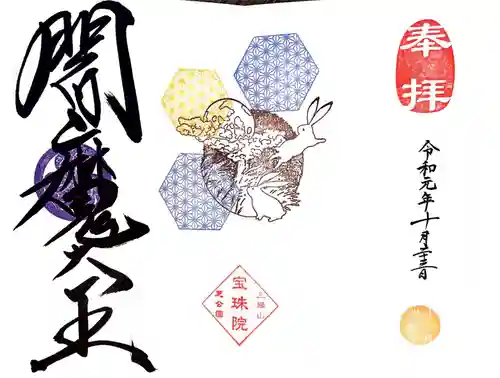 奉拝
令和元年十月二十三日
三縁山
宝珠院
芝公園
閻魔大王